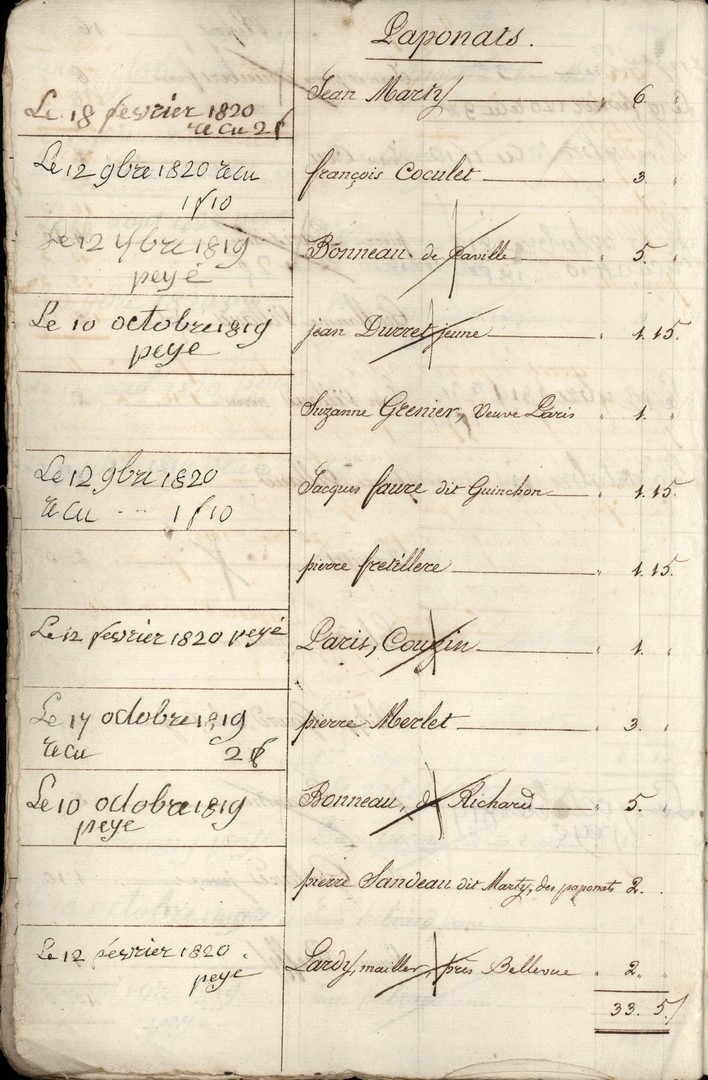 Paponats.
Le 18 fevrier 1820 Jean Marty 6. "
recu 2f
Le 12 9bre 1820 recu françois Coculet 3. "
1f10
Le 12 9bre 1819 Bonneau de Paville 5. "
peyé
Le 10 octobre 1819 jean Durret jeune 1. 15.
peye
Suzanne Grenier, Veuve Paris 1. "
Le 12 9bre 1820 Jacques faure dit Guinchon 1. 15.
recu ... 1f10
pierre fretillere 1. 15.
Le 12 fevrier 1820 peyé Paris, Couzin 1. "
Le 17 octobre 1819 pierre Merlet 3. "
recu 2f
Le 10 octobre 1819 Bonneau, de Richard 5. "
peye
pierre Sandeau dit Marty, des paponats 2. "
Le 12 février 1820. Lardy, mailler près Bellevue 2. "
peye
33. 5./